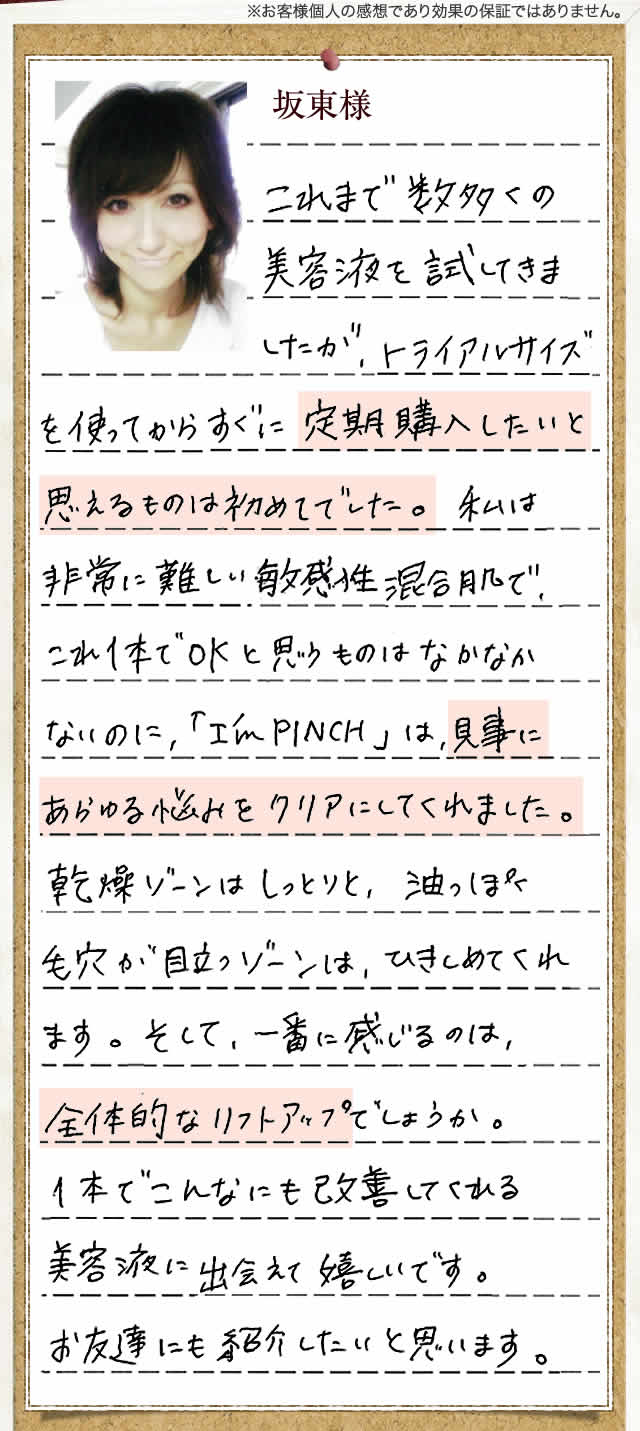 ※お客様個人の感想であり効果の保証ではありません。
坂東様
これまで数多くの
美容液を試してきま
したが、トライアルサイズ
を使ってからすぐに定期購入したいと
思えるものは初めてでした。私は
非常に難しい敏感性混合肌で、
これ1本でOKと思うものはなかなか
ないのに、「I'm PINCH」は、見事に
あらゆる悩みをクリアにしてくれました。
乾燥ゾーンはしっとりと、油っぽく
毛穴が目立つゾーンは、ひきしめてくれ
ます。そして、一番に感じるのは、
全体的なリフトアップでしょうか。
1本でこんなにも改善してくれる
美容液に出会えて嬉しいです。
お友達にも紹介したいと思います。